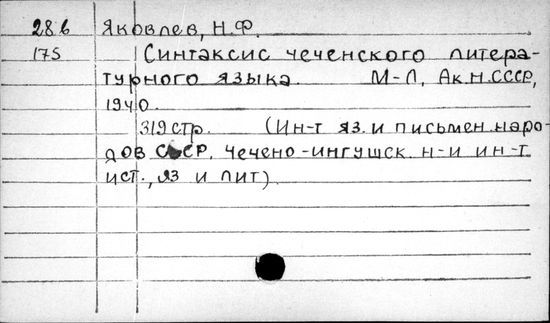 28 6 Яковлев, Н.Ф.
175 Синтаксис чеченского литера-
турного языка. М-Л, Ак.Н.СССР,
1940.
319 стр. (Ин-т яз. и письмен. наро-
дов СССР. Чечено-ингушск. н-и ин-т
ист., яз и лит).